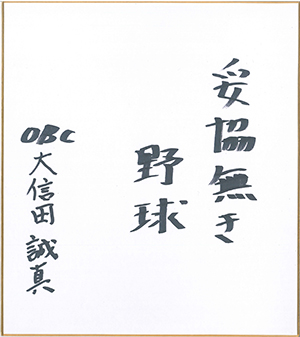 妥協無き
野球
OBC
大信田誠真